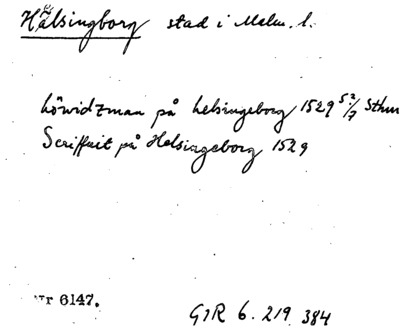 Hälsingborg stad i Malm. l.
höwidzman på helsingeborg 1529 5 2/7 Sthm
Scriffuit på Helsingeborg 1529
Nr 6147. G1R 6. 219 384